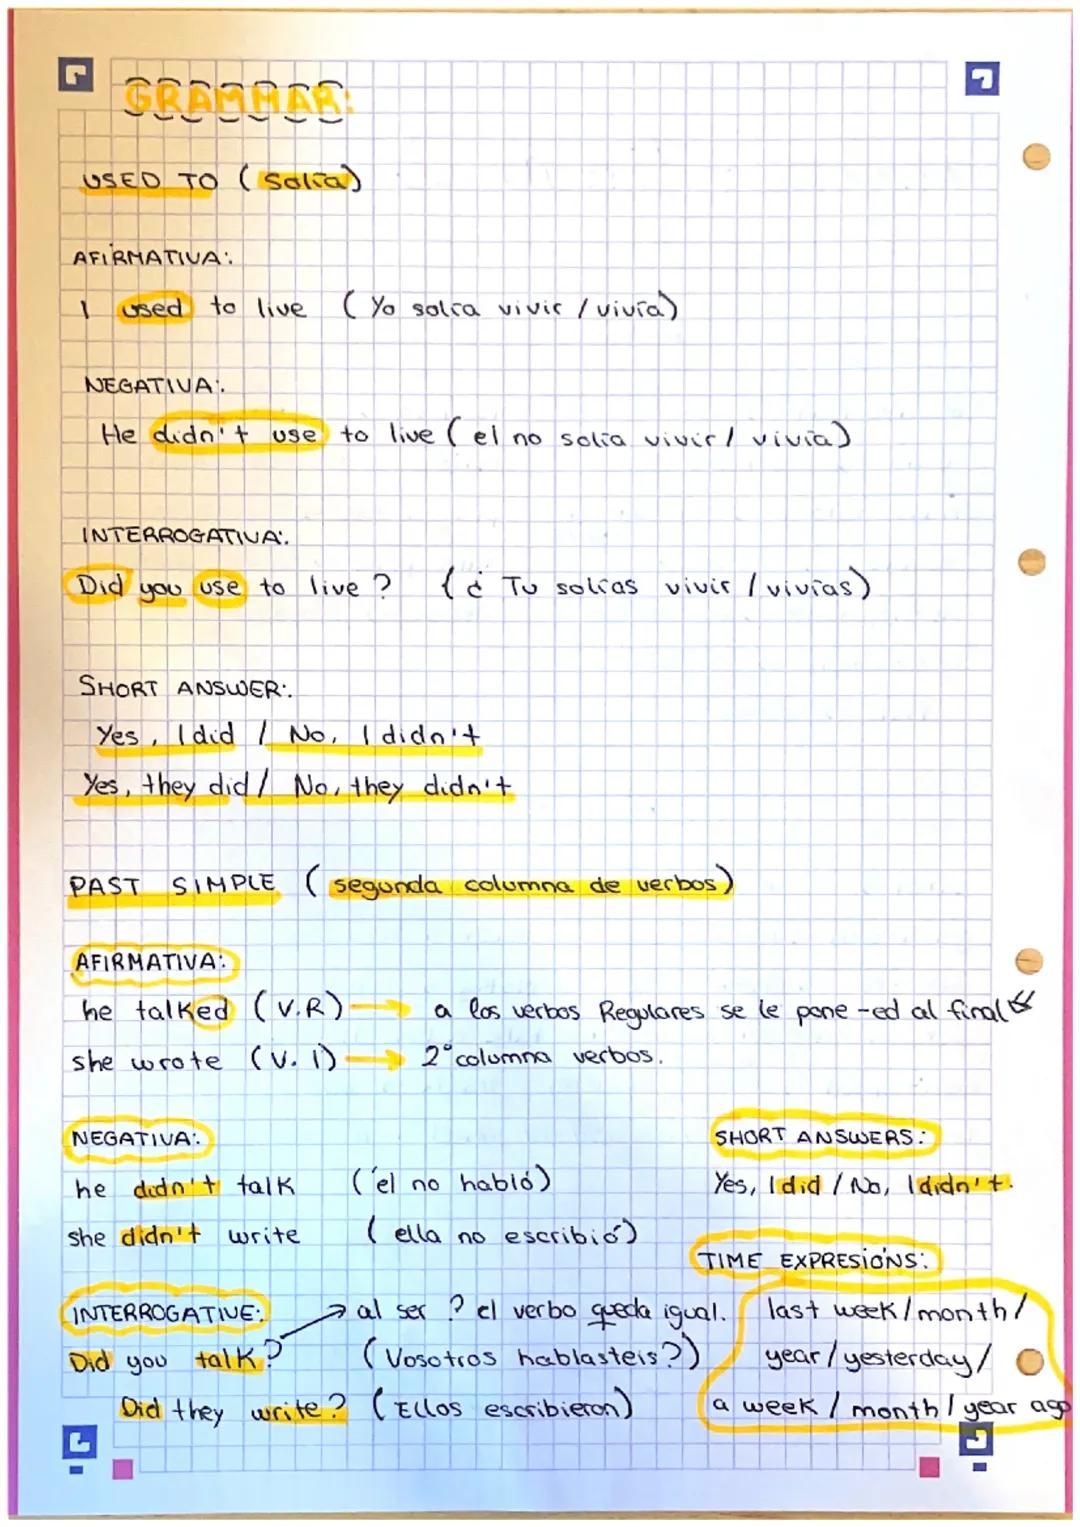 GRAMMAR:
USED TO (Solía)
AFIRMATIVA:
I used to live (Yo solía vivir / vivía)
NEGATIVA:
He didn't use to live (el no solía vivir / vivía)
INTERROGATIVA:
Did you use to live? (¿ Tu solías vivir / vivías)
SHORT ANSWER:
Yes, I did / No, I didn't
Yes, they did / No, they didn't
PAST SIMPLE (segunda columna de verbos)
AFIRMATIVA:
he talked (V.R) → a los verbos Regulares se le pone -ed al final
she wrote (V. I) → 2° columna verbos.
NEGATIVA:
he didn't talk (él no habló)
she didn't write (ella no escribió)
SHORT ANSWERS:
Yes, I did / No, I didn't.
TIME EXPRESIONS:
last week / month /
year / yesterday /
a week / month / year ago
INTERROGATIVE: → al ser ? el verbo queda igual.
Did you talk? (Vosotros hablasteis?)
Did they write? (Ellos escribieron)